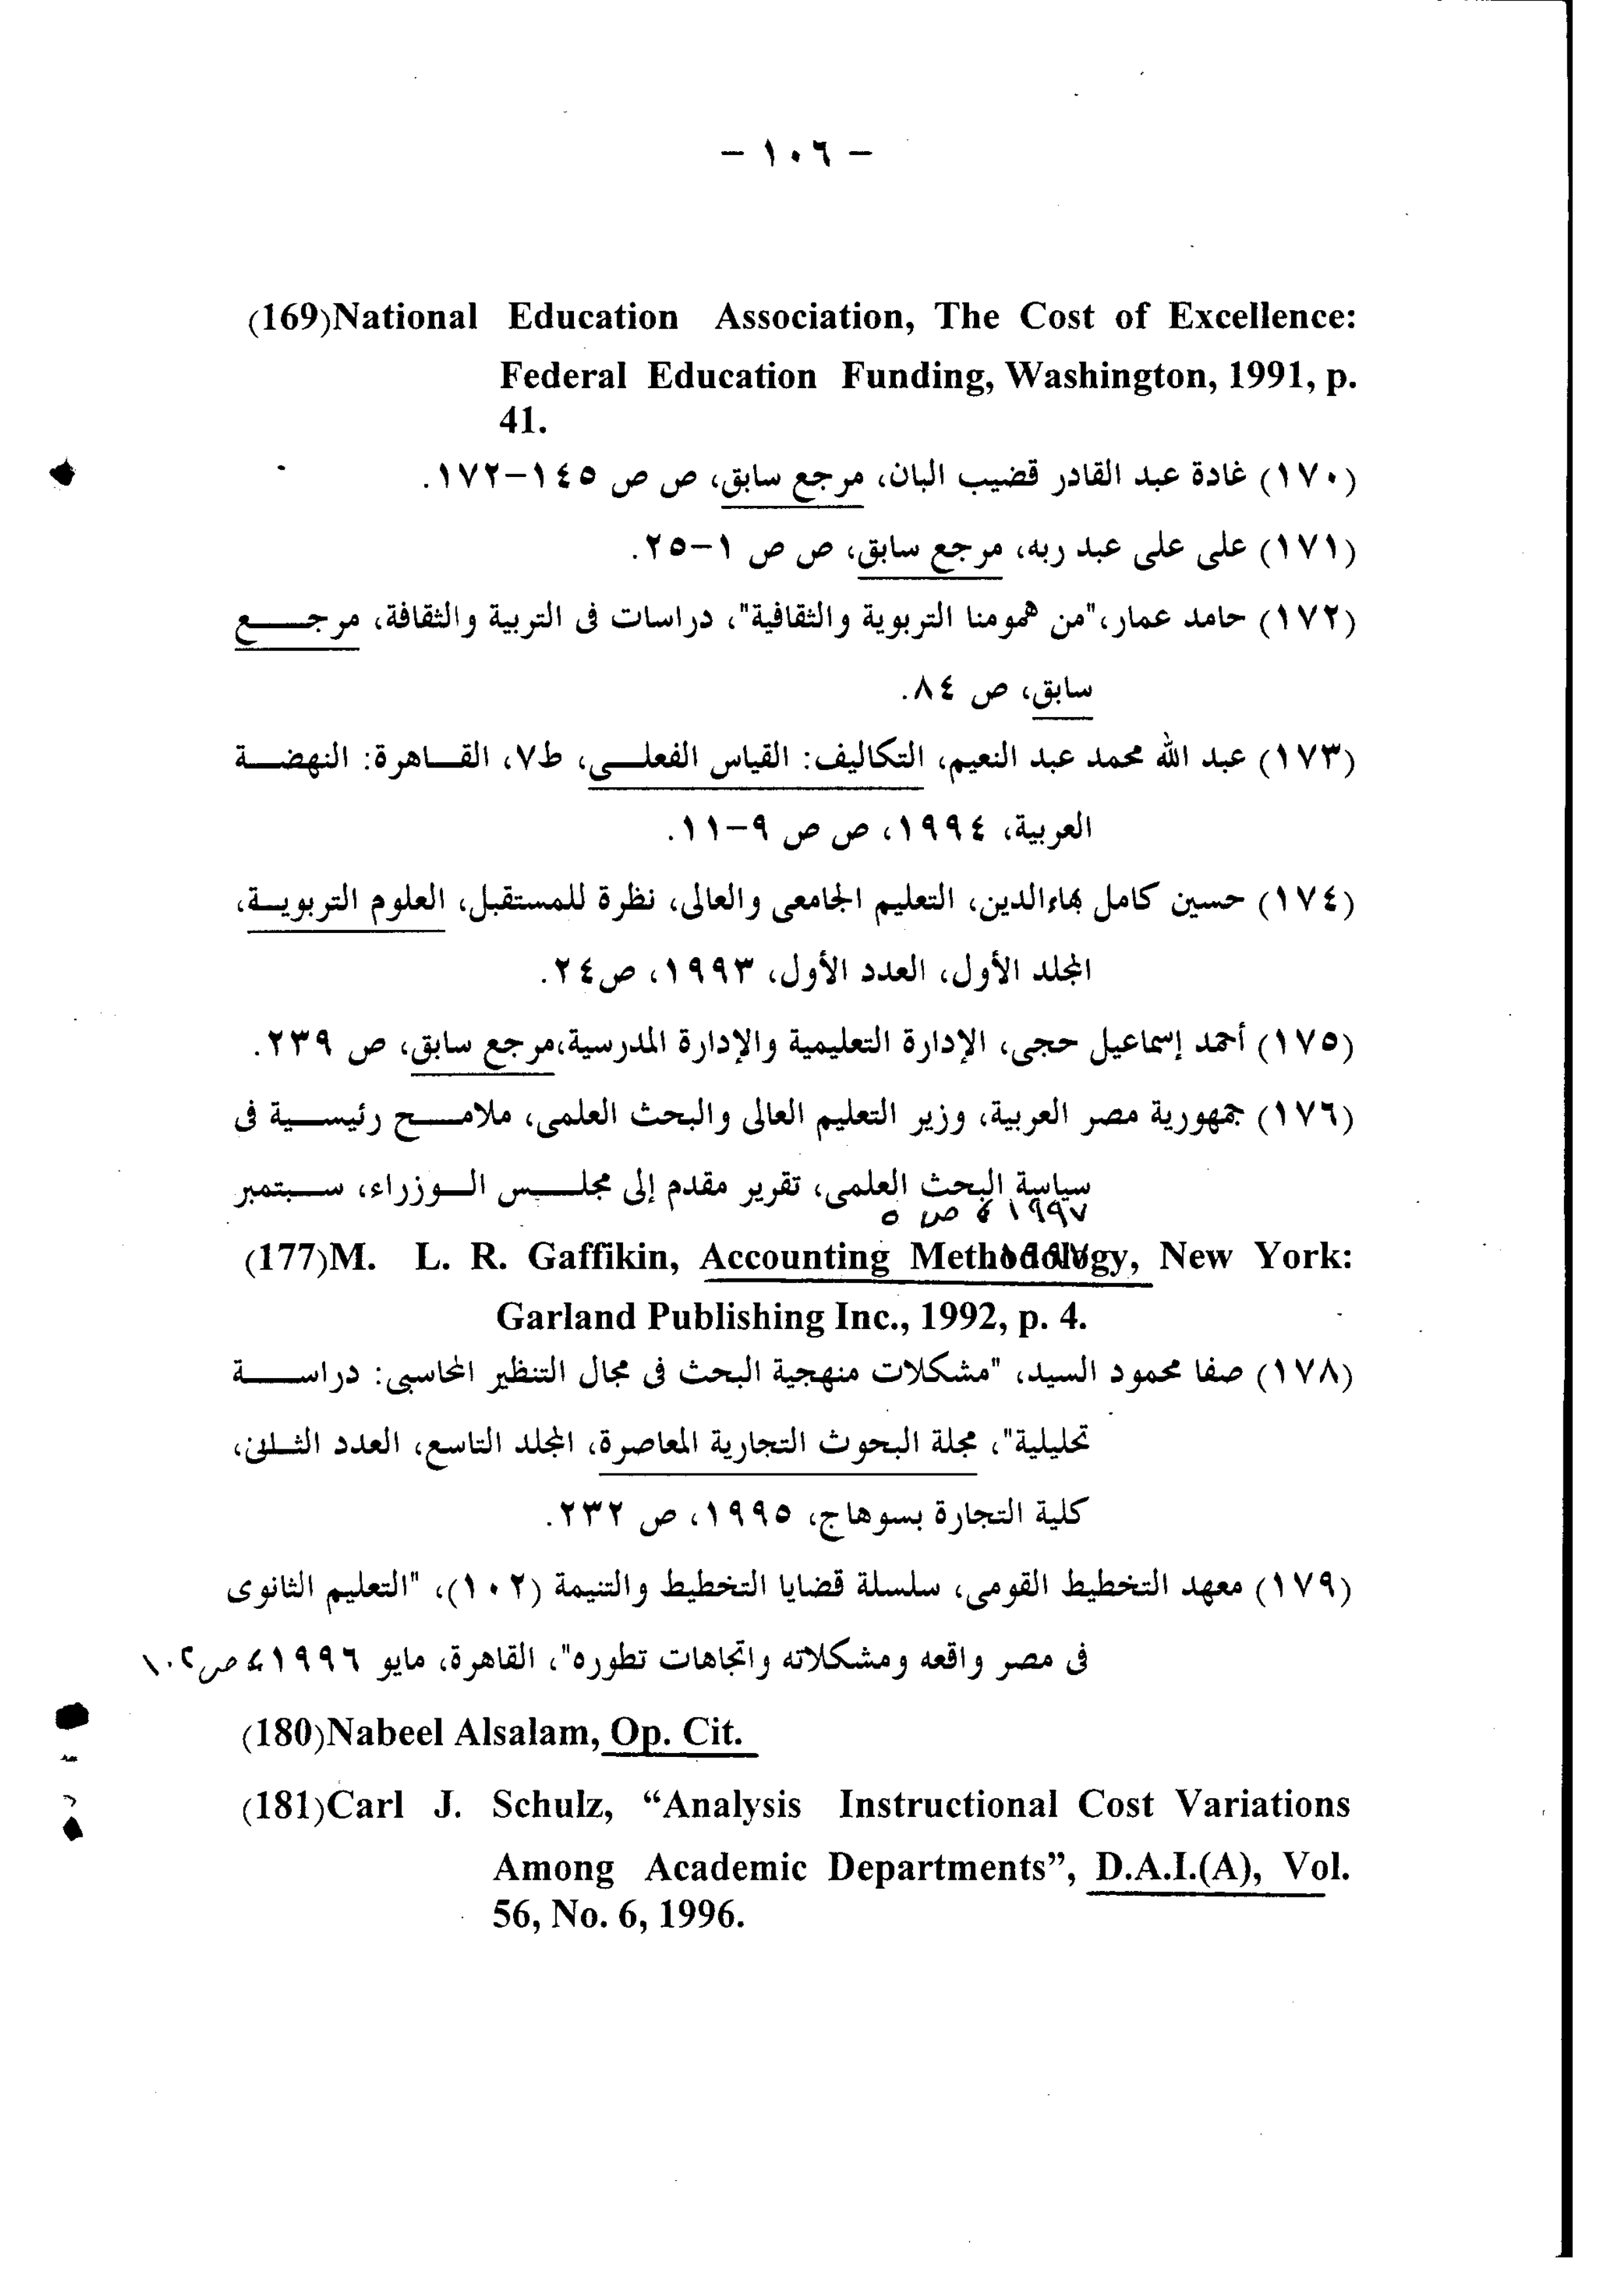 - ١٠٦ -
(169)National Education Association, The Cost of Excellence:
Federal Education Funding, Washington, 1991, p.
41.
(١٧٠) غادة عبد القادر قضيب البان، مرجع سابق، ص ص ١٤٥-١٧٢.
(١٧١) على على عبد ربه، مرجع سابق، ص ص ١-٢٥.
(١٧٢) حامد عمار،"من همومنا التربوية والثقافية"، دراسات فى التربية والثقافة، مرجـــع
سابق، ص ٨٤.
(١٧٣) عبد الله محمد عبد النعيم، التكاليف: القياس الفعلـــى، ط٧، القـاهرة: النهضـة
العربية، ١٩٩٤، ص ص ٩-١١.
(١٧٤) حسين كامل بهاءالدين، التعليم الجامعى والعالى، نظرة للمستقبل، العلوم التربويـة،
المجلد الأول، العدد الأول، ١٩٩٣، ص٢٤.
(١٧٥) أحمد إسماعيل حجى، الإدارة التعليمية والإدارة المدرسية،مرجع سابق، ص ٢٣٩.
(١٧٦) جمهورية مصر العربية، وزير التعليم العالى والبحث العلمى، ملامـــح رئيسـية فى
سياسة البحث العلمى، تقرير مقدم إلى مجلـــس الـوزراء، سـبتمبر
١٩٩٧ ، ص ٥
(177)M. L. R. Gaffikin, Accounting Methodology, New York:
Garland Publishing Inc., 1992, p. 4.
(١٧٨) صفا محمود السيد، "مشكلات منهجية البحث فى مجال التنظير المحاسبى: دراســـة
تحليلية"، مجلة البحوث التجارية المعاصرة، المجلد التاسع، العدد الثـانى،
كلية التجارة بسوهاج، ١٩٩٥، ص ٢٣٢.
(١٧٩) معهد التخطيط القومى، سلسلة قضايا التخطيط والتنيمة (١٠٢)، "التعليم الثانوى
فى مصر واقعه ومشكلاته واتجاهات تطوره"، القاهرة، مايو ١٩٩٦، ص١٠٢
(180)Nabeel Alsalam, Op. Cit.
(181)Carl J. Schulz, “Analysis Instructional Cost Variations
Among Academic Departments”, D.A.I.(A), Vol.
56, No. 6, 1996.